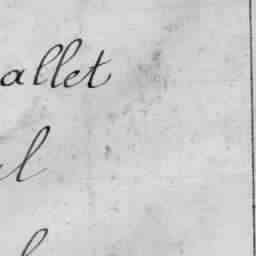 allet
l